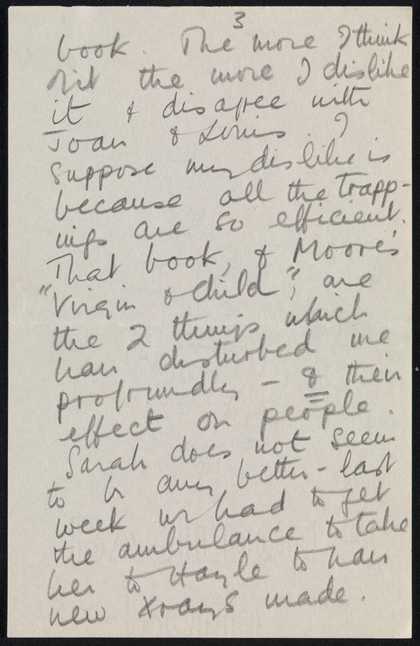 3
book. The more I think
of it the more I dislike
it & disagree with
Joan & Louis. I
suppose my dislike is
because all the trapp-
ings are so efficient.
That book, & Moore's
"Virgin & Child", are
the 2 things which
have disturbed me
profoundly - & their
effect on people.
Sarah does not seem
to be any better - last
week we had to get
the ambulance to take
her to Hayle to have
new Xrays made.